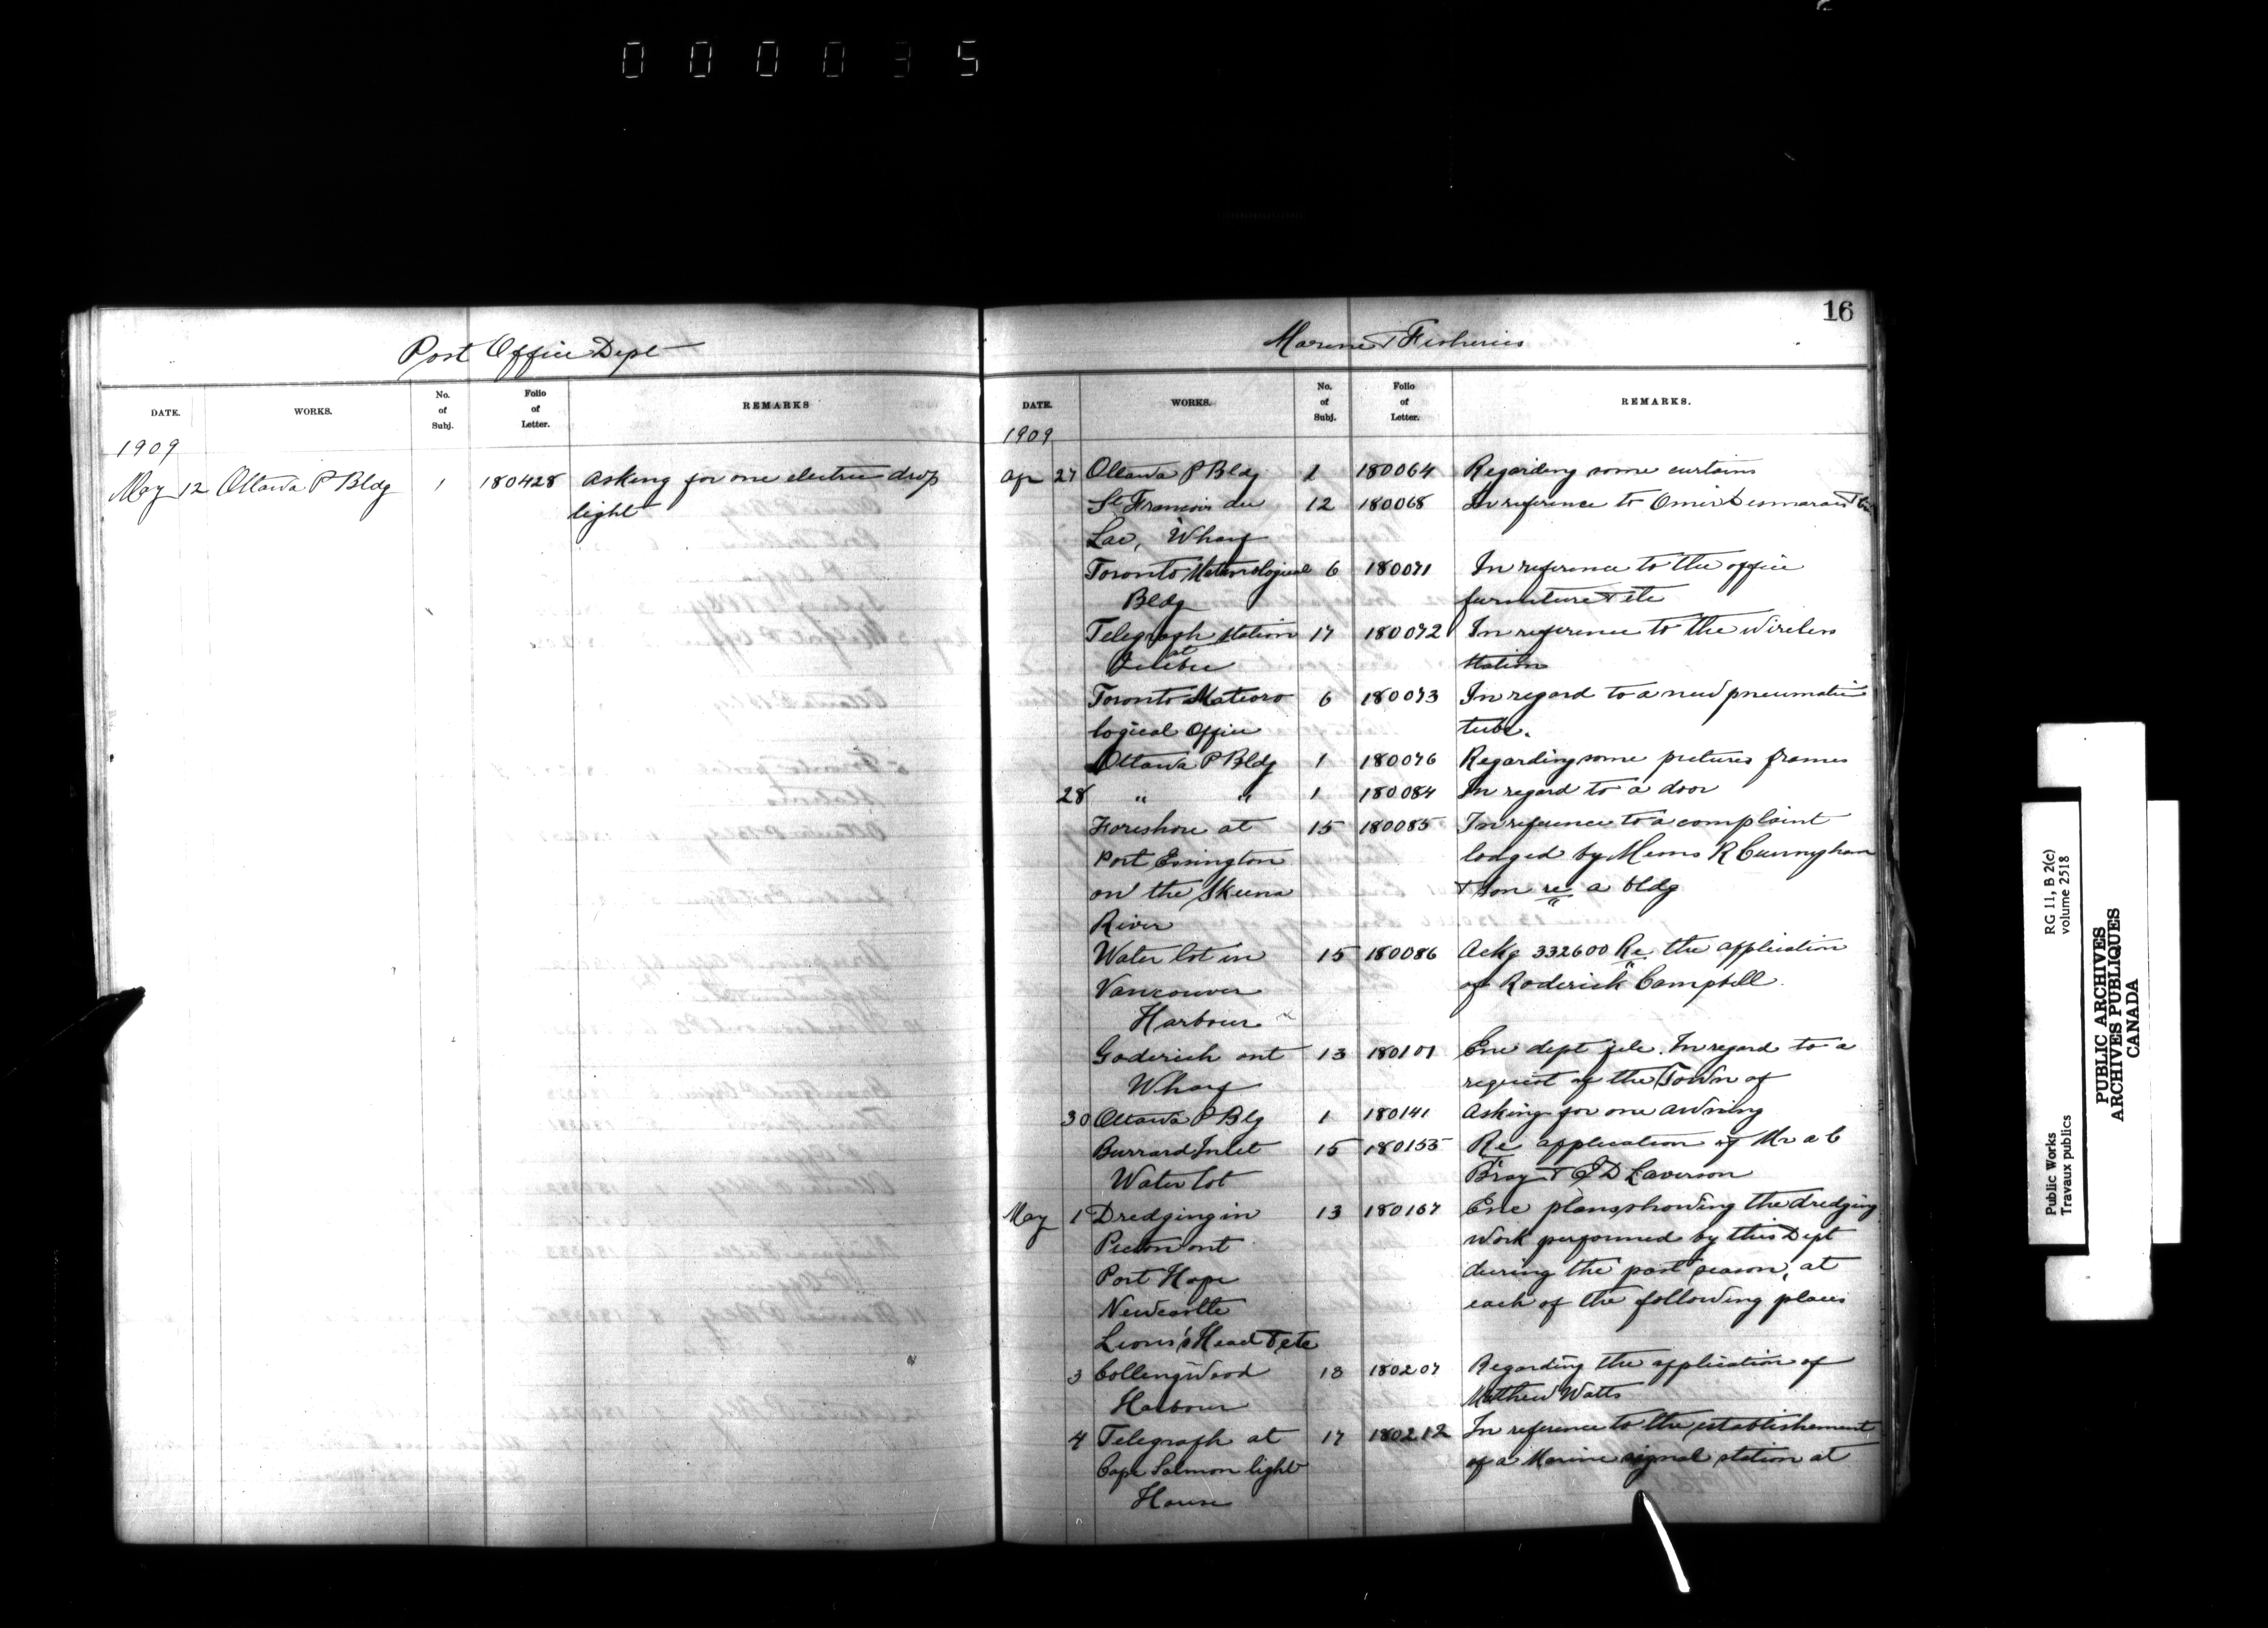 000035
Post Office Dept
DATE. WORKS. No. of Subj. Folio of Letter. REMARKS
1909
May 12 Ottawa P Bldg 1 180428 asking for one electric drop
light
16
Marine & Fisheries
DATE. WORKS. No. of Subj. Folio of Letter. REMARKS.
1909
Ap 27 Ottawa P Bldg 1 180064 Regarding some curtains
St Francois du 12 180068 In reference to Omer Desmarais
Lac, Wharf
Toronto Meteorological 6 180071 In reference to the office
Bldg furniture & etc
Telegraph station 17 180072 In reference to the wireless
at Quebec station
Toronto Mateoro 6 180073 In regard to a new pneumatic
logical Office tube.
Ottawa P Bldg 1 180076 Regarding some pictures frames
28 " " 1 180084 In regard to a door
Foreshore at 15 180085 In reference to a complaint
Port Essington lodged by Messrs R Cunnyham
on the Skeena & son re a bldg
River
Water lot in 15 180086 Ackg 332600 Re the application
Vancouver of Roderick Campbell
Harbour
Goderich ont 13 180101 Enc dept file. In regard to a
Wharf request of the Town of
30 Ottawa P Blg 1 180141 asking for one awning
Burrard Inlet 15 180155 Re application of Mr a C
Water lot Bray & J D Laverson
May 1 Dredging in 13 180167 Enc plans showing the dredging
Picton ont work performed by this Dept
Port Hope during the past season, at
Newcastle each of the following places
Lions's Head & etc
3 Collingwood 13 180207 Regarding the application of
Harbour Matthew Watts
4 Telegraph at 17 180212 In reference to the establishement
Cape Salmon light of a Marine signal station at
House
Public Works
Travaux publics
RG 11, B 2(c)
volume 2518
PUBLIC ARCHIVES
ARCHIVES PUBLIQUES
CANADA